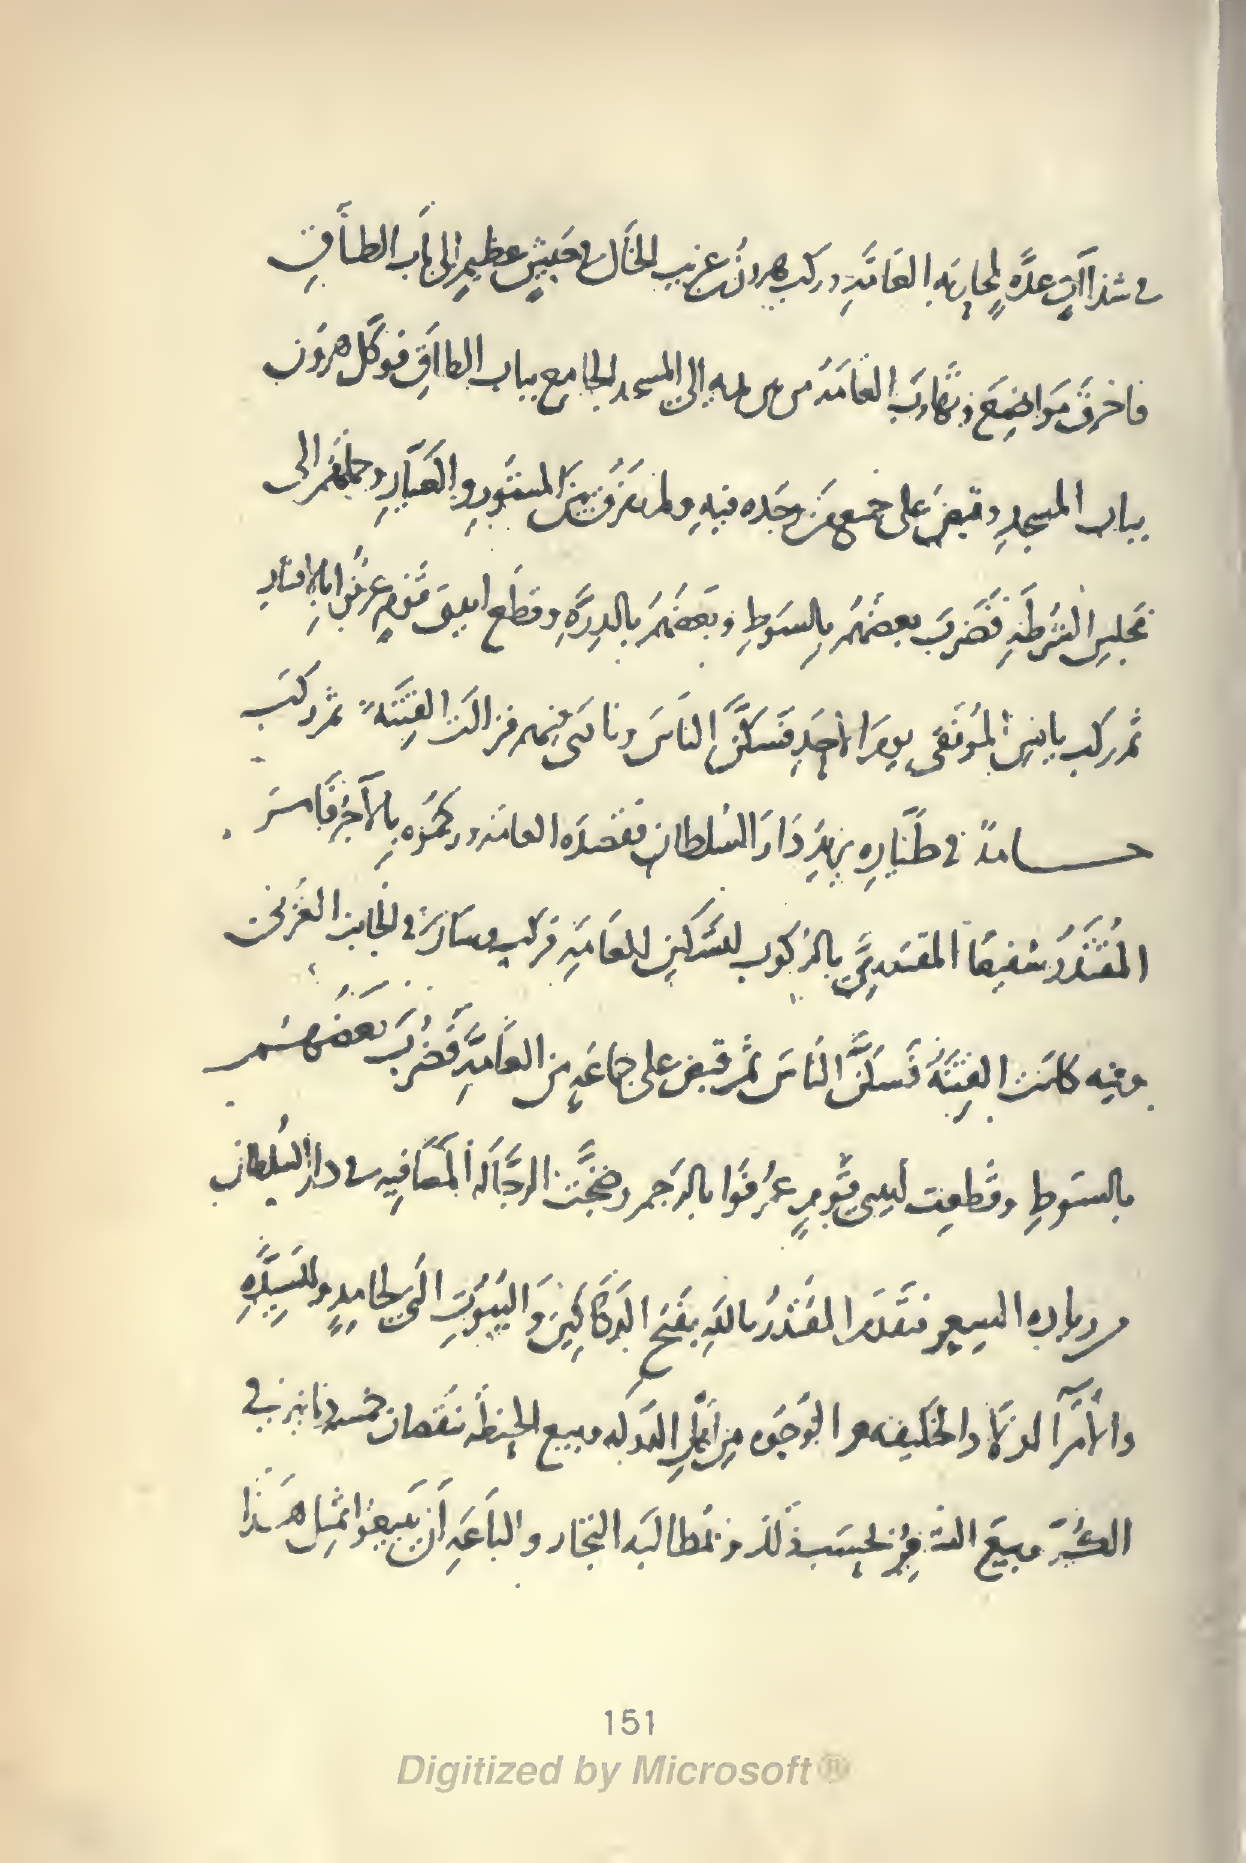 في شذاآتٍ عدَّه لمحاربَه العَامَّةِ وركب هرونُ بن غريب الخَال في جَيشٍ عظيمٍ الى بَاب الطَّاقِ
فاحرقَ مَوَاضِعَ وتهَاربَ العَامَّةُ من بين يديه الى المسجد الجامع بباب الطاقِ فوكَّل هرونُ
بباب المسجدِ وقبضَ على جميع مَن وجَده فيهِ ولم يفرّق بَينَ المستورِ والعَيَّارِ وحملَهُم الى
مجلِسِ الشُرطَةِ فَضَربَ بعضَهُم بالسَوطِ وبَعضَهُم بالدِرَّةِ وقطَع ايدي قَومٍ عرفُوا بالافسَادِ
ثم ركب يانس المُونَسي يومَ الأحَدِ فَسكَّنَ النَاسَ ونادَى فيهم فزالَت الفِتنَة ثم ركبَ
حـامدٌ في طَيَّارِه يريدُ دَارَ السُلطان فقصَدَه العامَّة ورجمُوه بالآجُرِّ فَامرَ
المُقتَدرُ شفيعًا المقتدريَّ بالركوب لتسكينِ العَامَّةِ فركب وسَارَ في الجَانِب الغَربيّ
وفيه كانت الفِتنَةُ فسكَّنَ النَاسَ ثم قبض على جماعَةٍ من العَامَّةِ فَضرَبَ بَعضَهم
بالسَوطِ وقُطعت ايدي قَومٍ عُرِفُوا بالرَجم وضجَّت الرجَّالَة المصَافيه في دار السُلطان
من زياده السعر فتقَدم المقتدرُ بالله بفَتح الدكَاكِينِ وَالبُيُوتِ التي لحامدٍ وللسيِّدَةِ
والأُمَرآ اولاد الخليفه والوُجُوه من اهل الدوله وببيع الحنطَة بنقصان خمسه دنانير في
الكُرّ وببيع الشعيرِ بحسَبِ ذلك وبمُطالبَه التجار والباعَه أن يَبيعُوا بمثل هَذا
151
Digitized by Microsoft ®